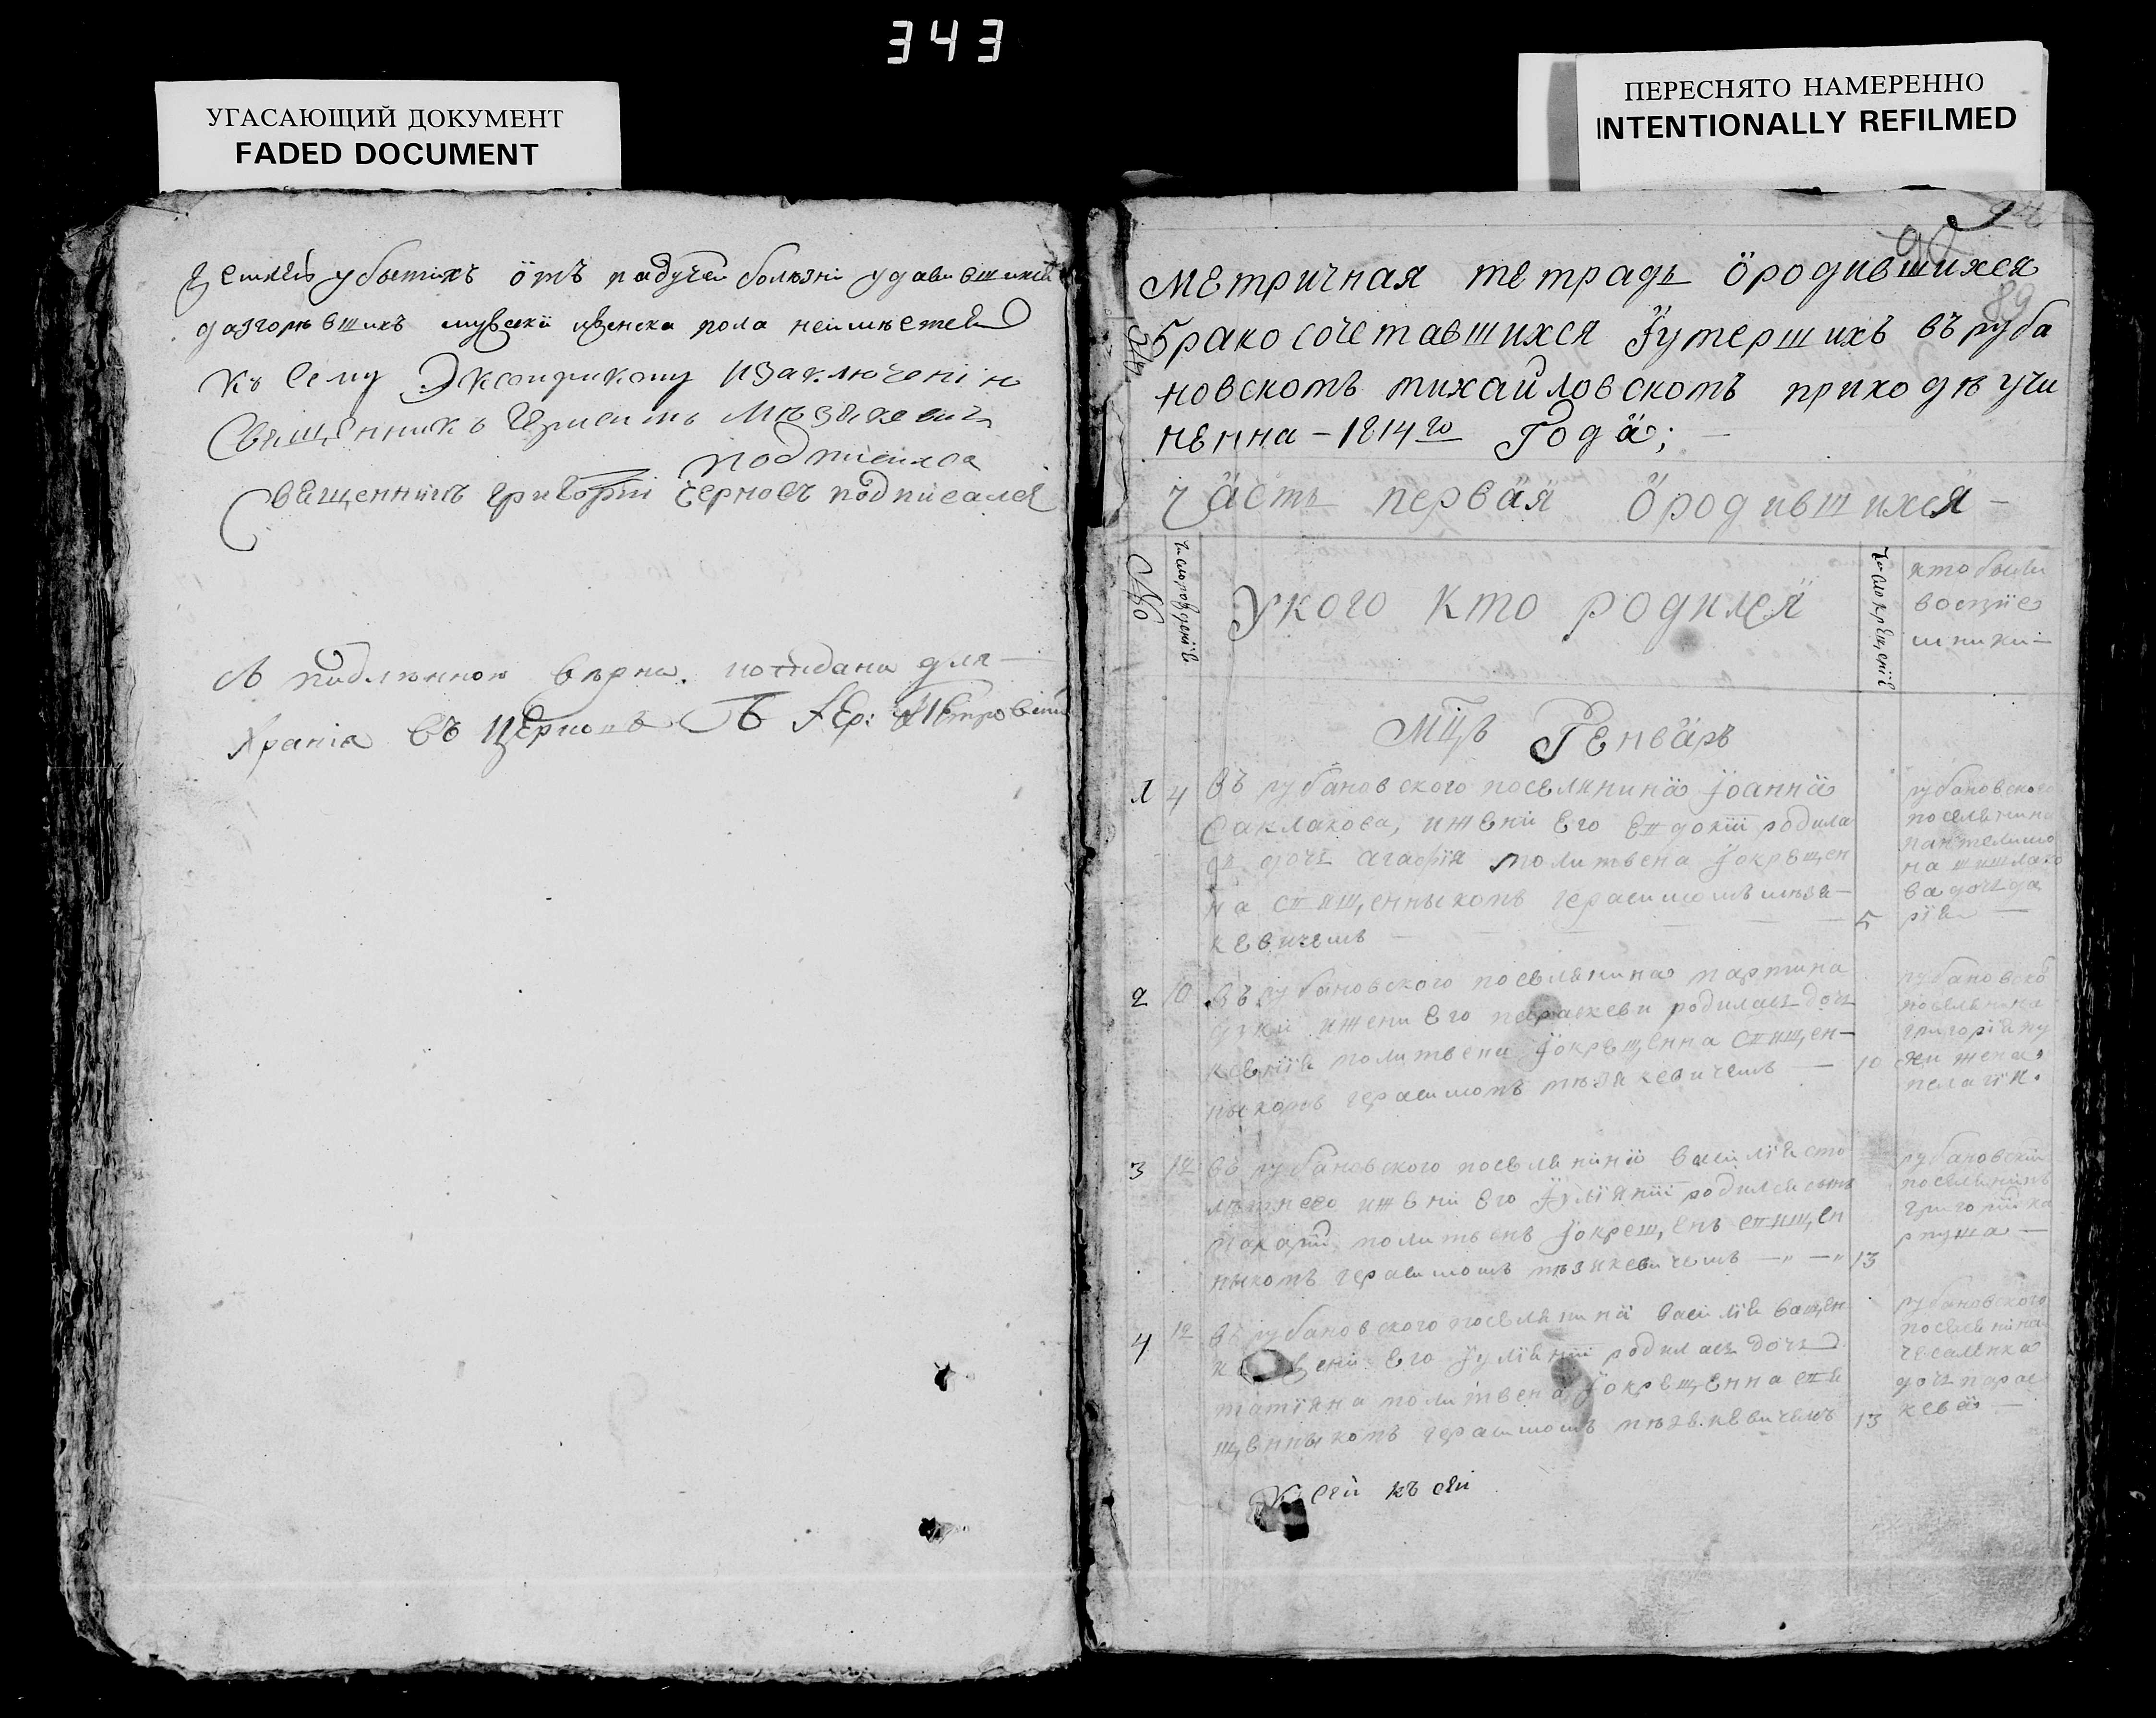 343
УГАСАЮЩИЙ ДОКУМЕНТ
FADED DOCUMENT
ПЕРЕСНЯТО НАМЕРЕННО
INTENTIONALLY REFILMED
убытихъ ѿтъ падучей болюзни удавившихся
женска пола неимѣется
Къ Сему Экстрикту изаключенію
Священникъ
подписался
Священникъ григорій Черновъ подписался
вѣрна. для —
Храніа въ Церковъ
90
89
Метричная тетрадь ородившихся
бракосочетавшихся іумершихъ въ руба
новскомъ михайловскомъ приходѣ учи
ненна – 1814го Года; —
Часть первая ородившихся –
№
Число рожденія
Укого кто родился
Число крещенія
кто были
воспріе
мники —
Мцъ Генваръ
1 4 Въ рубановского поселянина Іоанна
Саклакова, ижени Его Евдокіи родила
дочь агафія молитвена іокрещен
на священныкомъ герасимомъ мѣзя—
кевичемъ — 5
рубановского
поселянина
пантелимо
на шишлако
ва дочь да
рія —
2 10 Въ рубановского поселянина мартина
ижени Его параскеви родилась дочь
ксенія молитвена іокрещенна священ—
ныкомъ герасимомъ мѣзякевичемъ — 10
рубановско
поселянина
григорія пу
жена
пелагія.
3 12 Въ рубановского поселянина василія сто
лѣтнего ижени Его іуліяніи родился сынъ
макарій молитвенъ іокрещенъ священ
ныкомъ герасимомъ мѣзякевичемъ — „ — „ 13
рубановскій
поселянинъ
григорій ка
рпуша —
4 12 Въ рубановского поселянина василія ващен
и жени Его іуліяніи родилась дочь
татіяна молитвена іокрещенна свя
щенныкомъ герасимомъ мѣзякевичемъ 13
рубановского
поселянина
чесалника
дочь парас
кева —
К сей къ сей